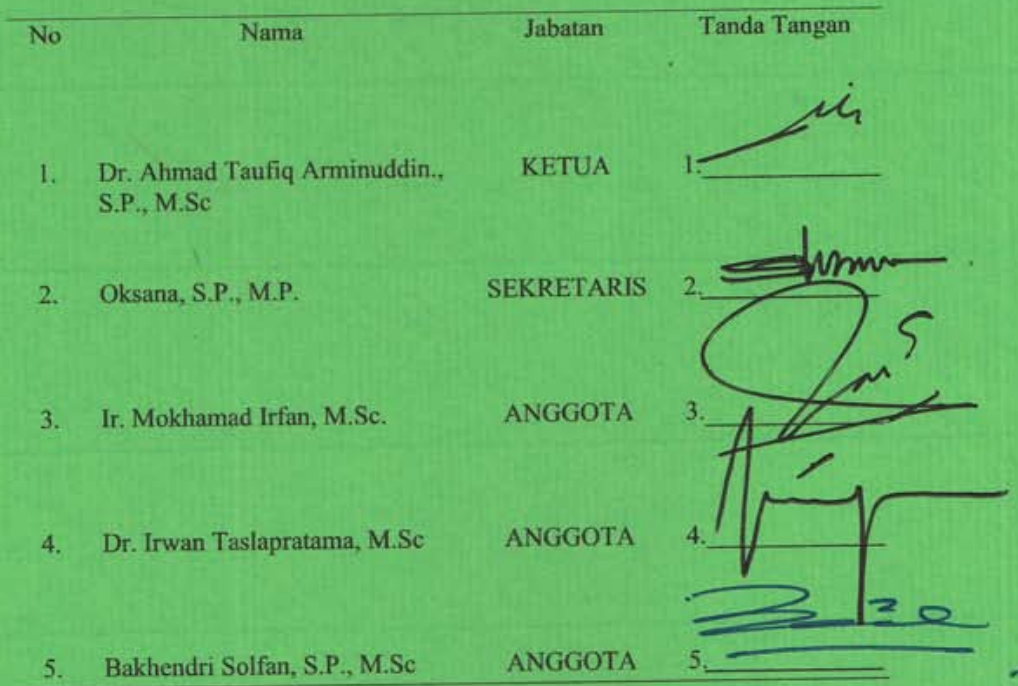 No Nama Jabatan Tanda Tangan
1. Dr. Ahmad Taufiq Arminuddin., KETUA 1.
S.P., M.Sc
2. Oksana, S.P., M.P. SEKRETARIS 2.
3. Ir. Mokhamad Irfan, M.Sc. ANGGOTA 3.
4. Dr. Irwan Taslapratama, M.Sc ANGGOTA 4.
5. Bakhendri Solfan, S.P., M.Sc ANGGOTA 5.